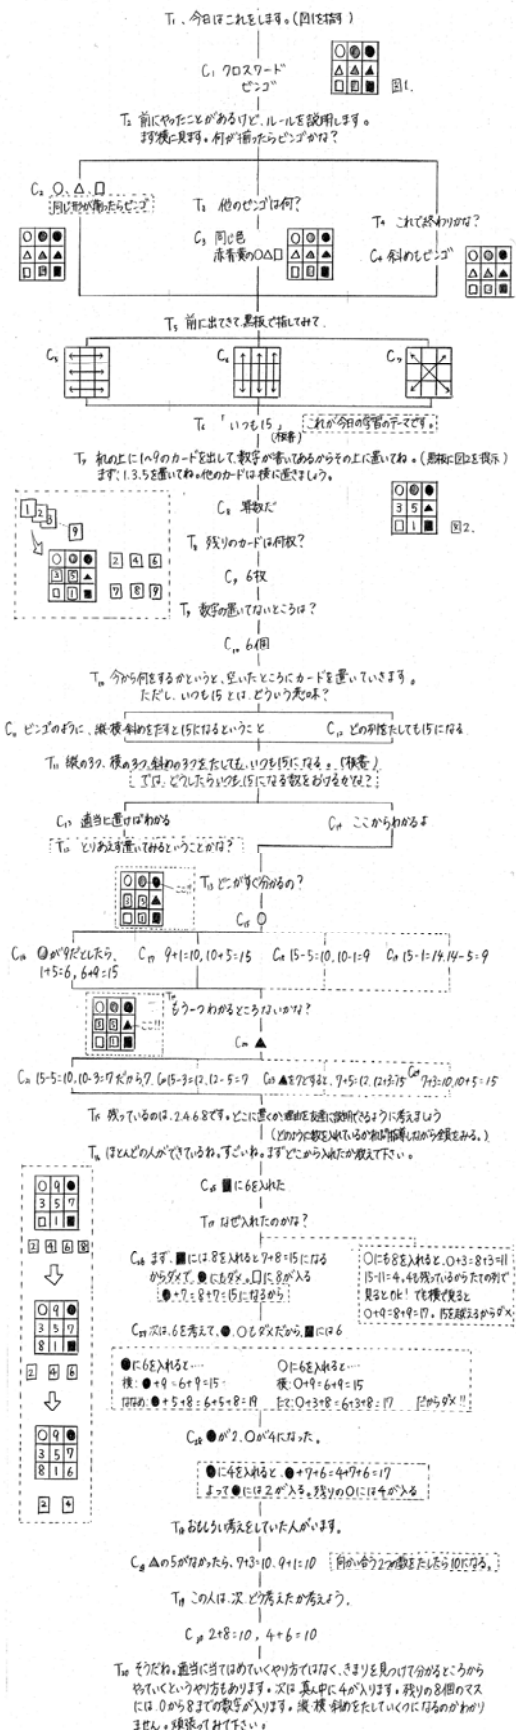 T₁、今日はこれをします。(図1を指す)
C₁ クロスワード
ビンゴ
図1.
T₂ 前にやったことがあるけど、ルールを説明します。
まず横に見ます。何が揃ったらビンゴかな？
C₂ ○、△、□
同じ形が揃ったらビンゴ
T₃ 他のビンゴは何？
C₃ 同じ色
赤青黄の○△□
T₄ これで終わりかな？
C₄ 斜めもビンゴ
T₅ 前に出てきて、黒板で指してみて。
C₅
C₆
C₇
T₆ 「いつも15」
(板書)
これが今日の学習のテーマです。
T₇ 机の上に1〜9のカードを出して、数字が書いてあるからその上に置いてね。(黒板に図2を提示)
まず、1.3.5を置いてね。他のカードは横に置きましょう。
1 2 3 9
3 5
1
2 4 6
7 8 9
3 5
1
図2.
C₈ 算数だ
T₈ 残りのカードは何枚？
C₉ 6枚
T₉ 数字の置いてないところは？
C₁₀ 6個
T₁₀ 今から何をするかというと、空いたところにカードを置いていきます。
ただし、いつも15とは、どういう意味？
C₁₁ ビンゴのように、縦・横・斜めをたすと15になるということ
C₁₂ どの列をたしても15になる
T₁₁ 縦の3つ、横の3つ、斜めの3つをたしても、いつも15になる。(板書)
では、どうしたらいつも15になる数をおけるかな？
C₁₃ 適当に置けばわかる
C₁₄ ここからわかるよ
T₁₂ とりあえず置いてみるということかな？
3 5
1
ここ!!
T₁₃ どこがすぐ分かるの？
C₁₅ ○
C₁₆ ○が9だとしたら、
1+5=6, 6+9=15
C₁₇ 9+1=10, 10+5=15
C₁₈ 15-5=10, 10-1=9
C₁₉ 15-1=14, 14-5=9
3 5
1
ここ!!
T₁₄
もう一つわかるところないかな？
C₂₀ ▲
C₂₁ 15-5=10, 10-3=7だから7
C₂₂ 15-3=12, 12-5=7
C₂₃ ▲を7とすると、7+5=12, 12+3=15
C₂₄ 7+3=10, 10+5=15
T₁₅ 残っているのは、2.4.6.8です。どこに置くか、理由を友達に説明できるように考えましょう
(どのように数を入れているか机間指導しながら全員をみる。)
T₁₆ ほとんどの人ができているね。すごいね。まずどこから入れたか教えて下さい。
C₂₅ ■に6を入れた
T₁₇ なぜ入れたのかな？
○ 9 ●
3 5 7
□ 1 ■
2 4 6 8
○ 9 ●
3 5 7
8 1 ■
2 4 6
○ 9 ●
3 5 7
8 1 6
2 4
C₂₆ まず、■には8を入れると7+8=15になる
からダメで、●にもダメ。□に8が入る
●+7=8+7=15になるから
○にも8を入れると、○+3=8+3=11
15-11=4。4も残っているからたての列で
見るとOK！でも横で見ると
○+9=8+9=17。15を越えるからダメ
C₂₇ 次は、6を考えて、●、○もダメだから、■には6
●に6を入れると…
横：●+9=6+9=15
ななめ：●+5+8=6+5+8=19
○に6を入れると…
横：○+9=6+9=15
たて：○+3+8=6+3+8=17
だからダメ!!
C₂₈ ●が2、○が4になった。
●に4を入れると、●+7+6=4+7+6=17
よって●には2が入る。残りの○には4が入る
T₁₈ おもしろい考えをしていた人がいます。
C₂₉ △の5がなかったら、7+3=10, 9+1=10
向かい合う2つの数をたしたら10になる。
T₁₉ この人は、次、どう考えたか考えよう。
C₃₀ 2+8=10, 4+6=10
T₂₀ そうだね。適当に当てはめていくやり方ではなく、きまりを見つけて分かるところから
やっていくというやり方もあります。次は、真ん中に4が入ります。残りの8個のマス
には、0から8までの数字が入ります。縦・横・斜めをたしていくつになるのかわかり
ません。頑張ってみて下さい。